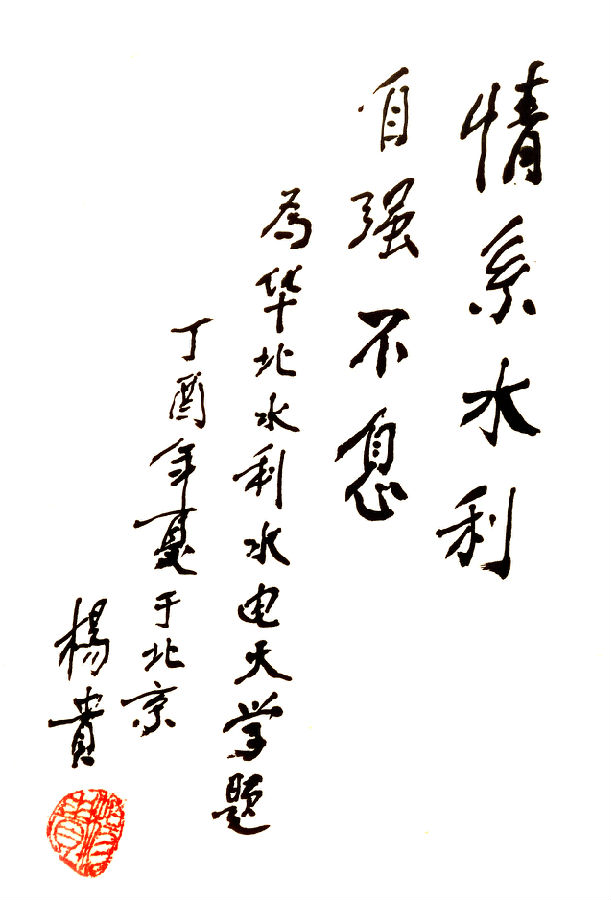 情系水利
自强不息
為华北水利水电大学题
丁酉年夏于北京
楊貴